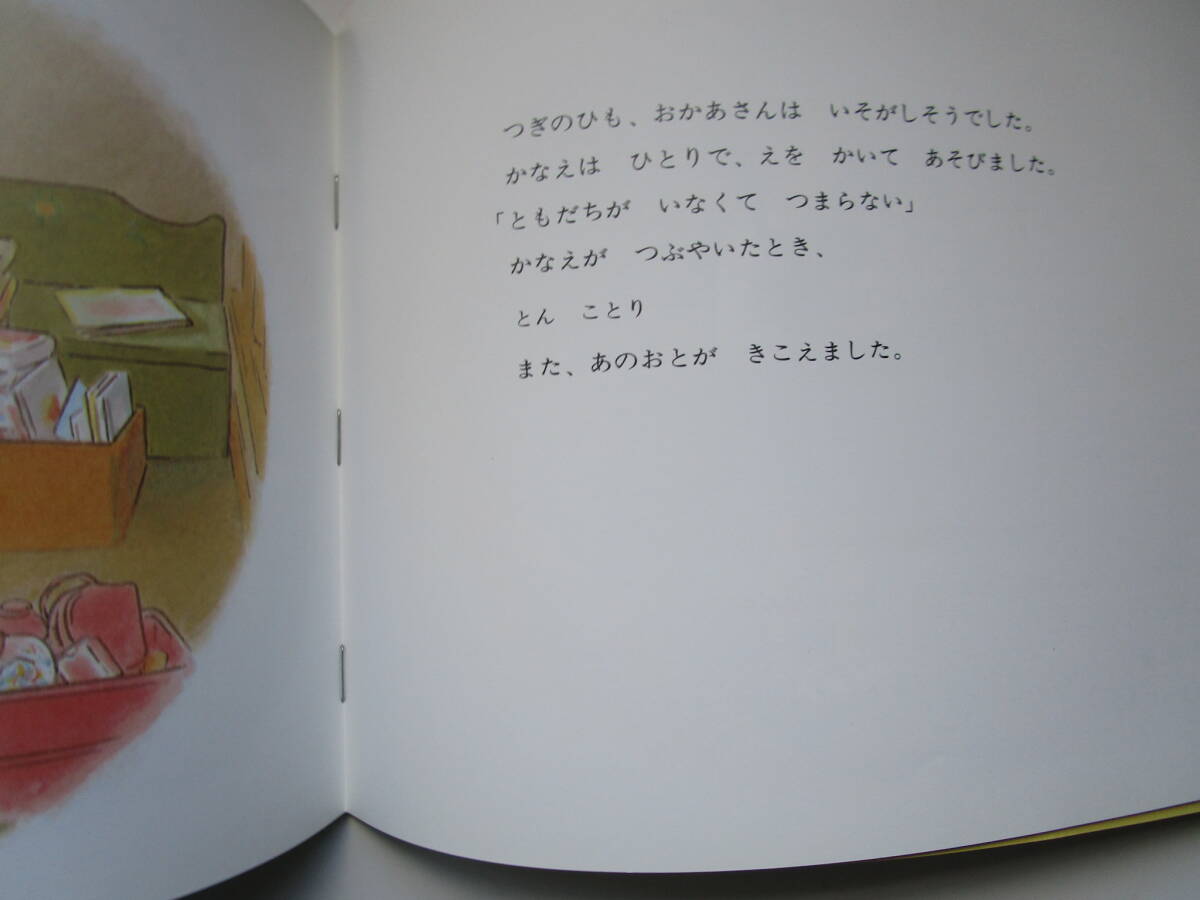 つぎのひも、おかあさんは　いそがしそうでした。
かなえは　ひとりで、えを　かいて　あそびました。
「ともだちが　いなくて　つまらない」
かなえが　つぶやいたとき、
とん　ことり
また、あのおとが　きこえました。